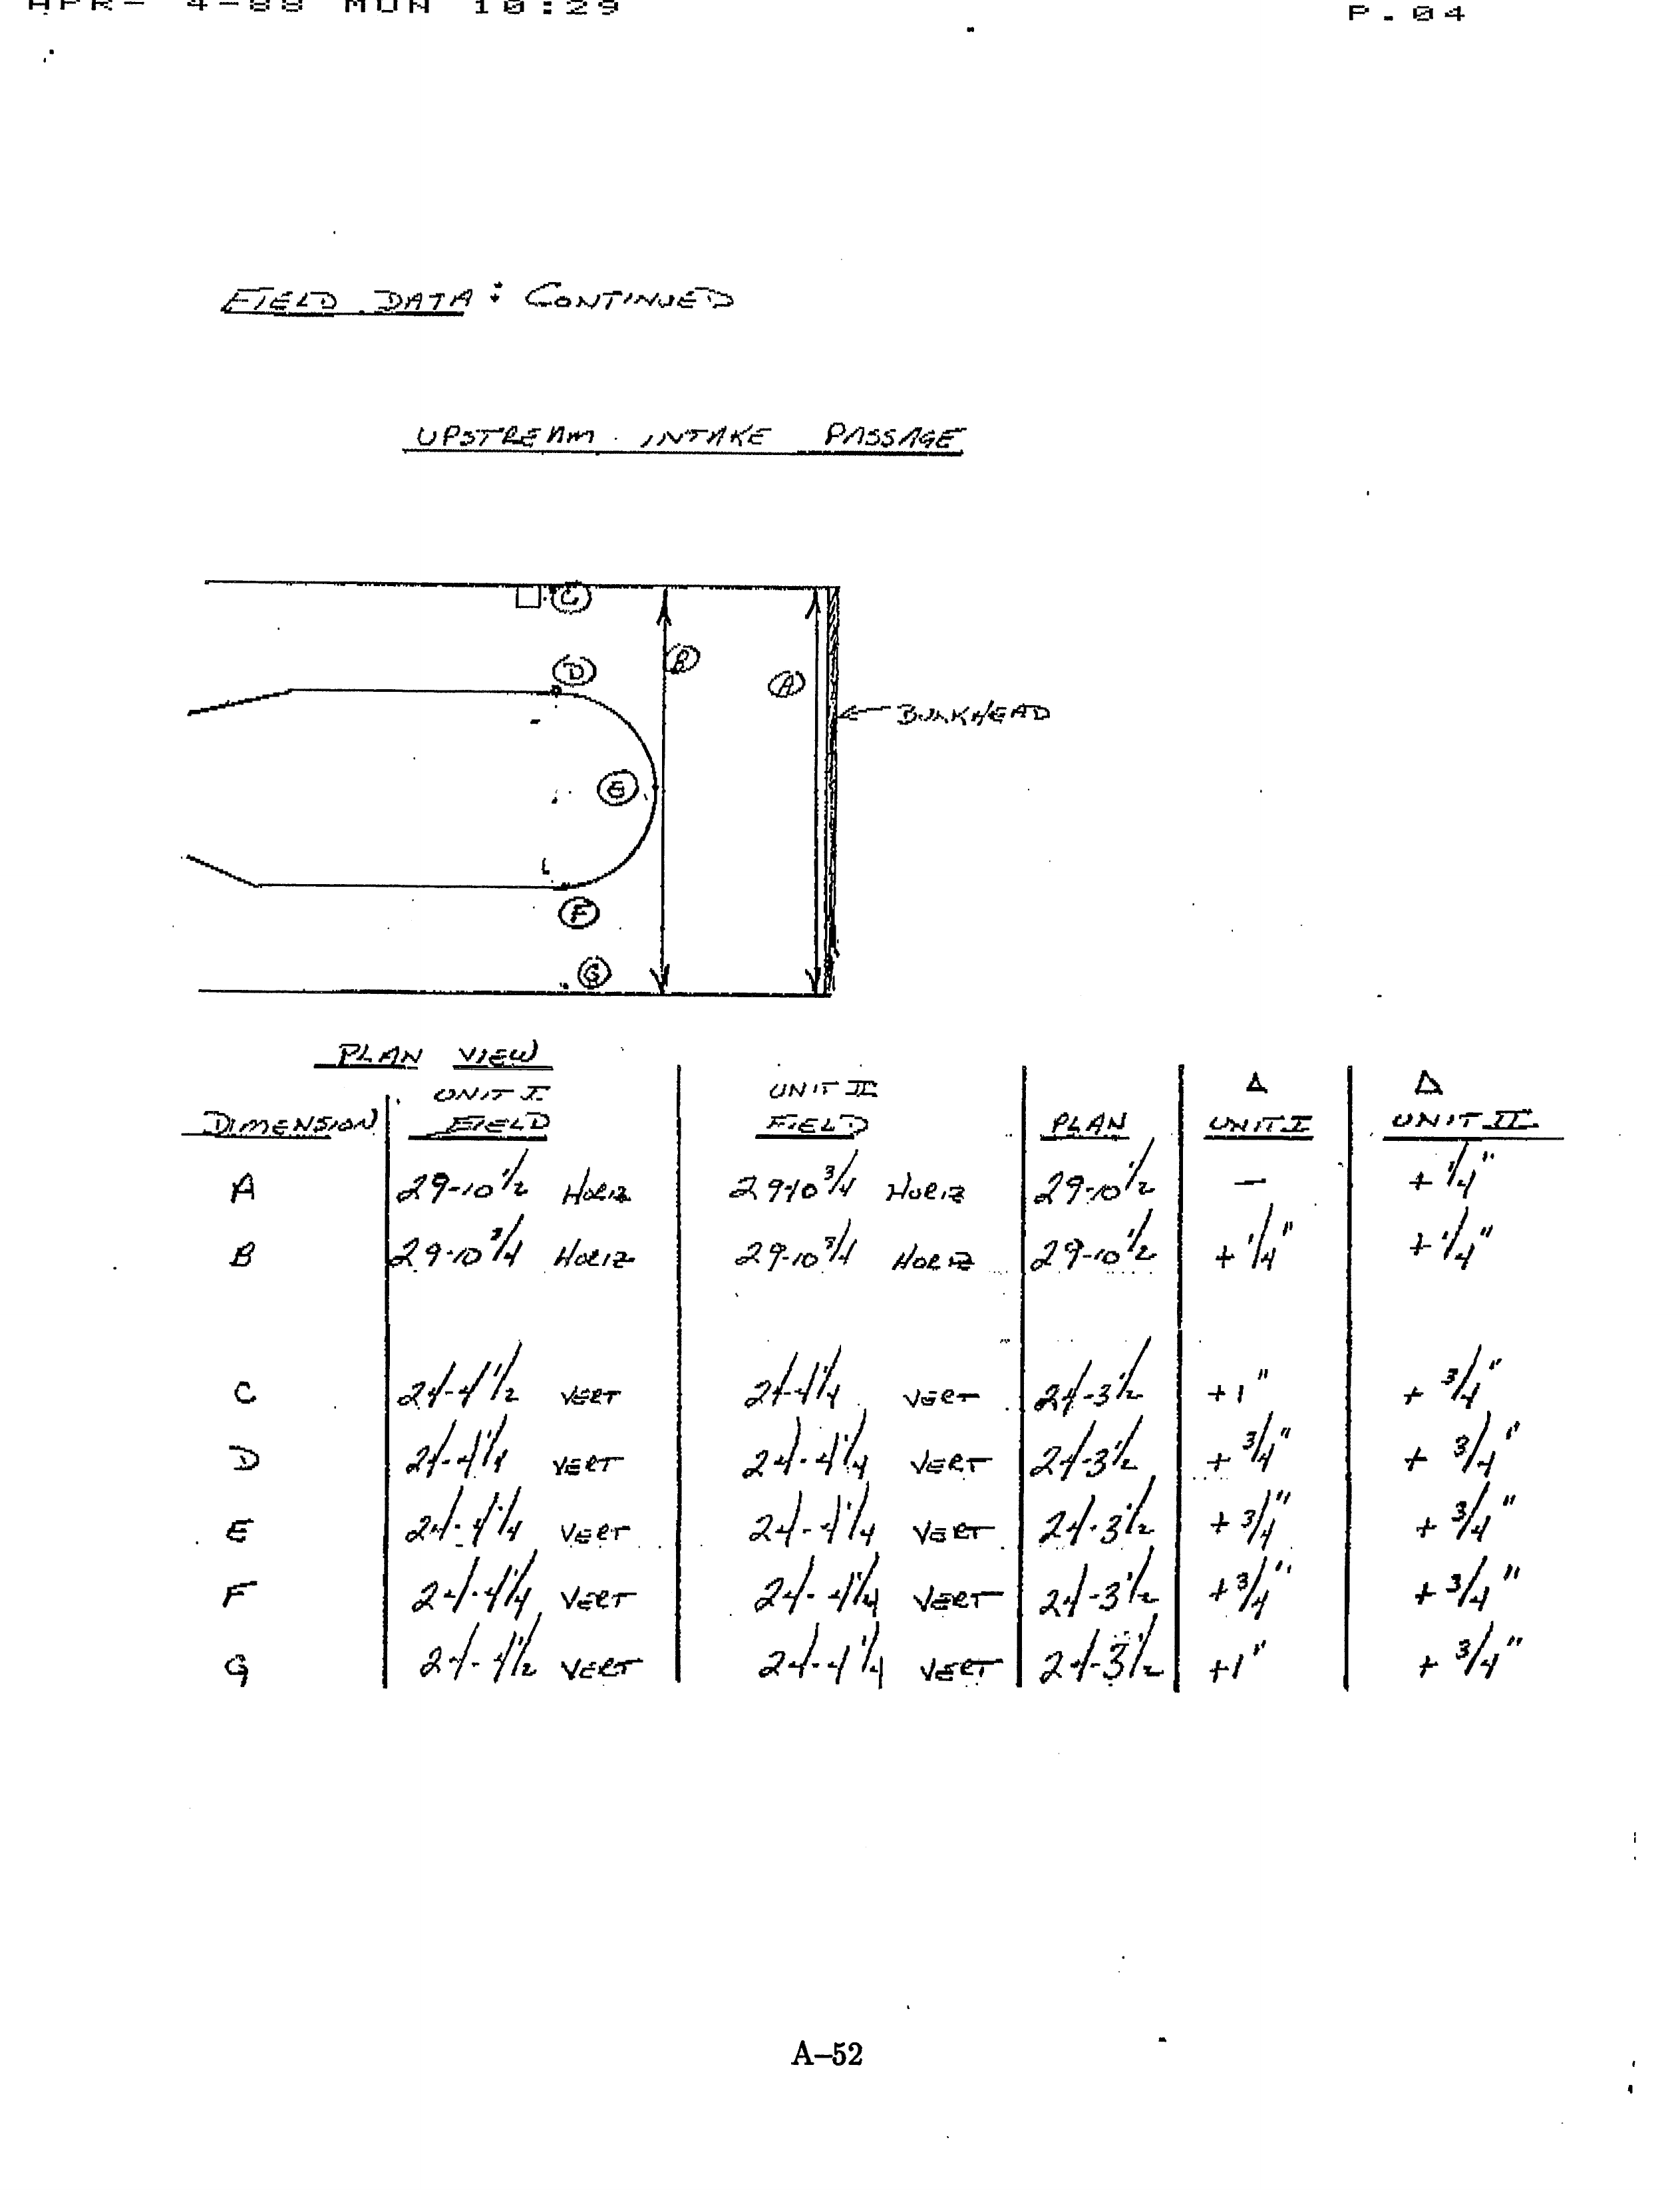 APR- 4-88 MON 10:29 P.04
FIELD DATA: CONTINUED
UPSTREAM INTAKE PASSAGE
C
D
B
A
BULKHEAD
E
F
G
PLAN VIEW
UNIT I UNIT II Δ Δ
DIMENSION FIELD FIELD PLAN UNIT I UNIT II
A 29-10 1/2 HORIZ 29-10 3/4 HORIZ 29-10 1/2 — + 1/4"
B 29-10 3/4 HORIZ 29-10 3/4 HORIZ 29-10 1/2 + 1/4" + 1/4"
C 24-4 1/2 VERT 24-4 1/4 VERT 24-3 1/2 +1" + 3/4"
D 24-4 1/4 VERT 24-4 1/4 VERT 24-3 1/2 + 3/4" + 3/4"
E 24-4 1/4 VERT 24-4 1/4 VERT 24-3 1/2 + 3/4" + 3/4"
F 24-4 1/4 VERT 24-4 1/4 VERT 24-3 1/2 + 3/4" + 3/4"
G 24-4 1/2 VERT 24-4 1/4 VERT 24-3 1/2 +1" + 3/4"
A–52